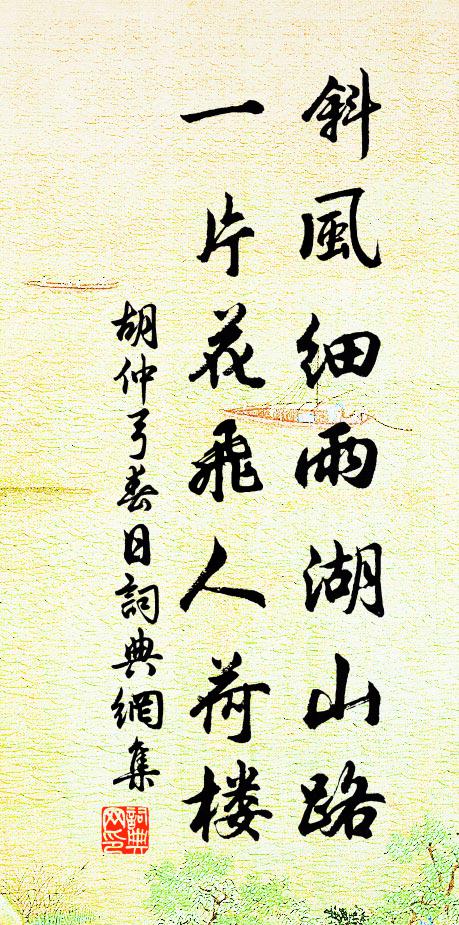 斜風細雨湖山路
一片花飛人荷楼
胡仲弓春日詞典網集
詞典网印